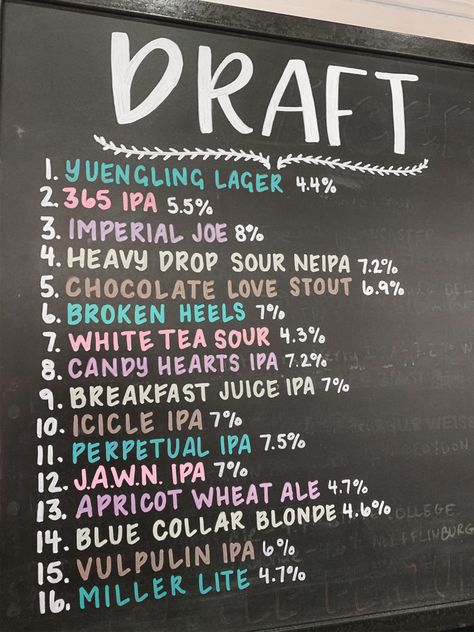 DRAFT
1. YUENGLING LAGER 4.4%
2. 365 IPA 5.5%
3. IMPERIAL JOE 8%
4. HEAVY DROP SOUR NEIPA 7.2%
5. CHOCOLATE LOVE STOUT 6.9%
6. BROKEN HEELS 7%
7. WHITE TEA SOUR 4.3%
8. CANDY HEARTS IPA 7.2%
9. BREAKFAST JUICE IPA 7%
10. ICICLE IPA 7%
11. PERPETUAL IPA 7.5%
12. J.A.W.N. IPA 7%
13. APRICOT WHEAT ALE 4.7%
14. BLUE COLLAR BLONDE 4.6%
15. VULPULIN IPA 6%
16. MILLER LITE 4.7%